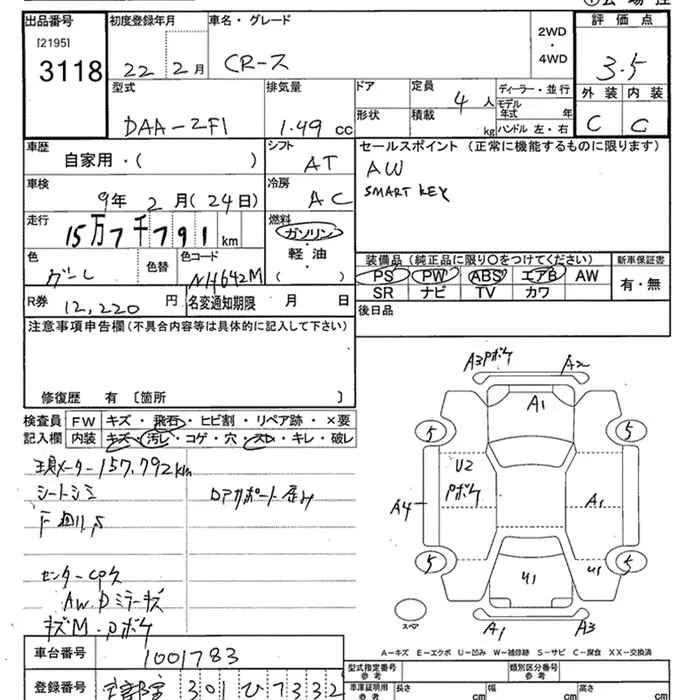 出品番号 初度登録年月 車名・グレード 2WD・4WD 評価点
[2195]
3118 22 2月 CR-Z 3.5
型式 排気量 ドア 定員 4人 ディーラー・並行 外装 内装
モデル年式 年
DAA-ZF1 1.49cc 形状 積載 kg ハンドル 左・右 C C
車歴 自家用・( ) シフト AT セールスポイント (正常に機能するものに限ります)
AW
SMART KEY
車検 9年 2月(24日) 冷房 AC
走行 15万7千791km 燃料 ガソリン・軽油・( )
色 グレー 色替 色コード NH642M
装備品 (純正品に限り○をつけてください) 新車保証書
PS PW ABS エアB AW 有・無
SR ナビ TV カワ
R券 12,220円 名変通知期限 月 日 後日品
注意事項申告欄(不具合内容等は具体的に記入して下さい)
修復歴 有 [箇所 ]
検査員記入欄 FW キズ・飛石・ヒビ割・リペア跡・×要
内装 キズ・汚レ・コゲ・穴・スレ・キレ・破レ
現メーター157,792km
シートシミ
センターcpキズ
AW.Dミラーキズ
キズM.Pボケ
A3Pボケ A2
A1
5 5
U2
Pボケ
A4 A1
5 5
U1 U1
スペア
A1 A3
A−キズ E−エクボ U−凹み W−補修跡 S−サビ C−腐食 XX−交換済
車台番号 1001783
登録番号 宇都宮 301 ひ 7332
型式指定番号 参考 類別区分番号 参考
車庫証明用 参考 長さ cm 幅 cm 高さ cm